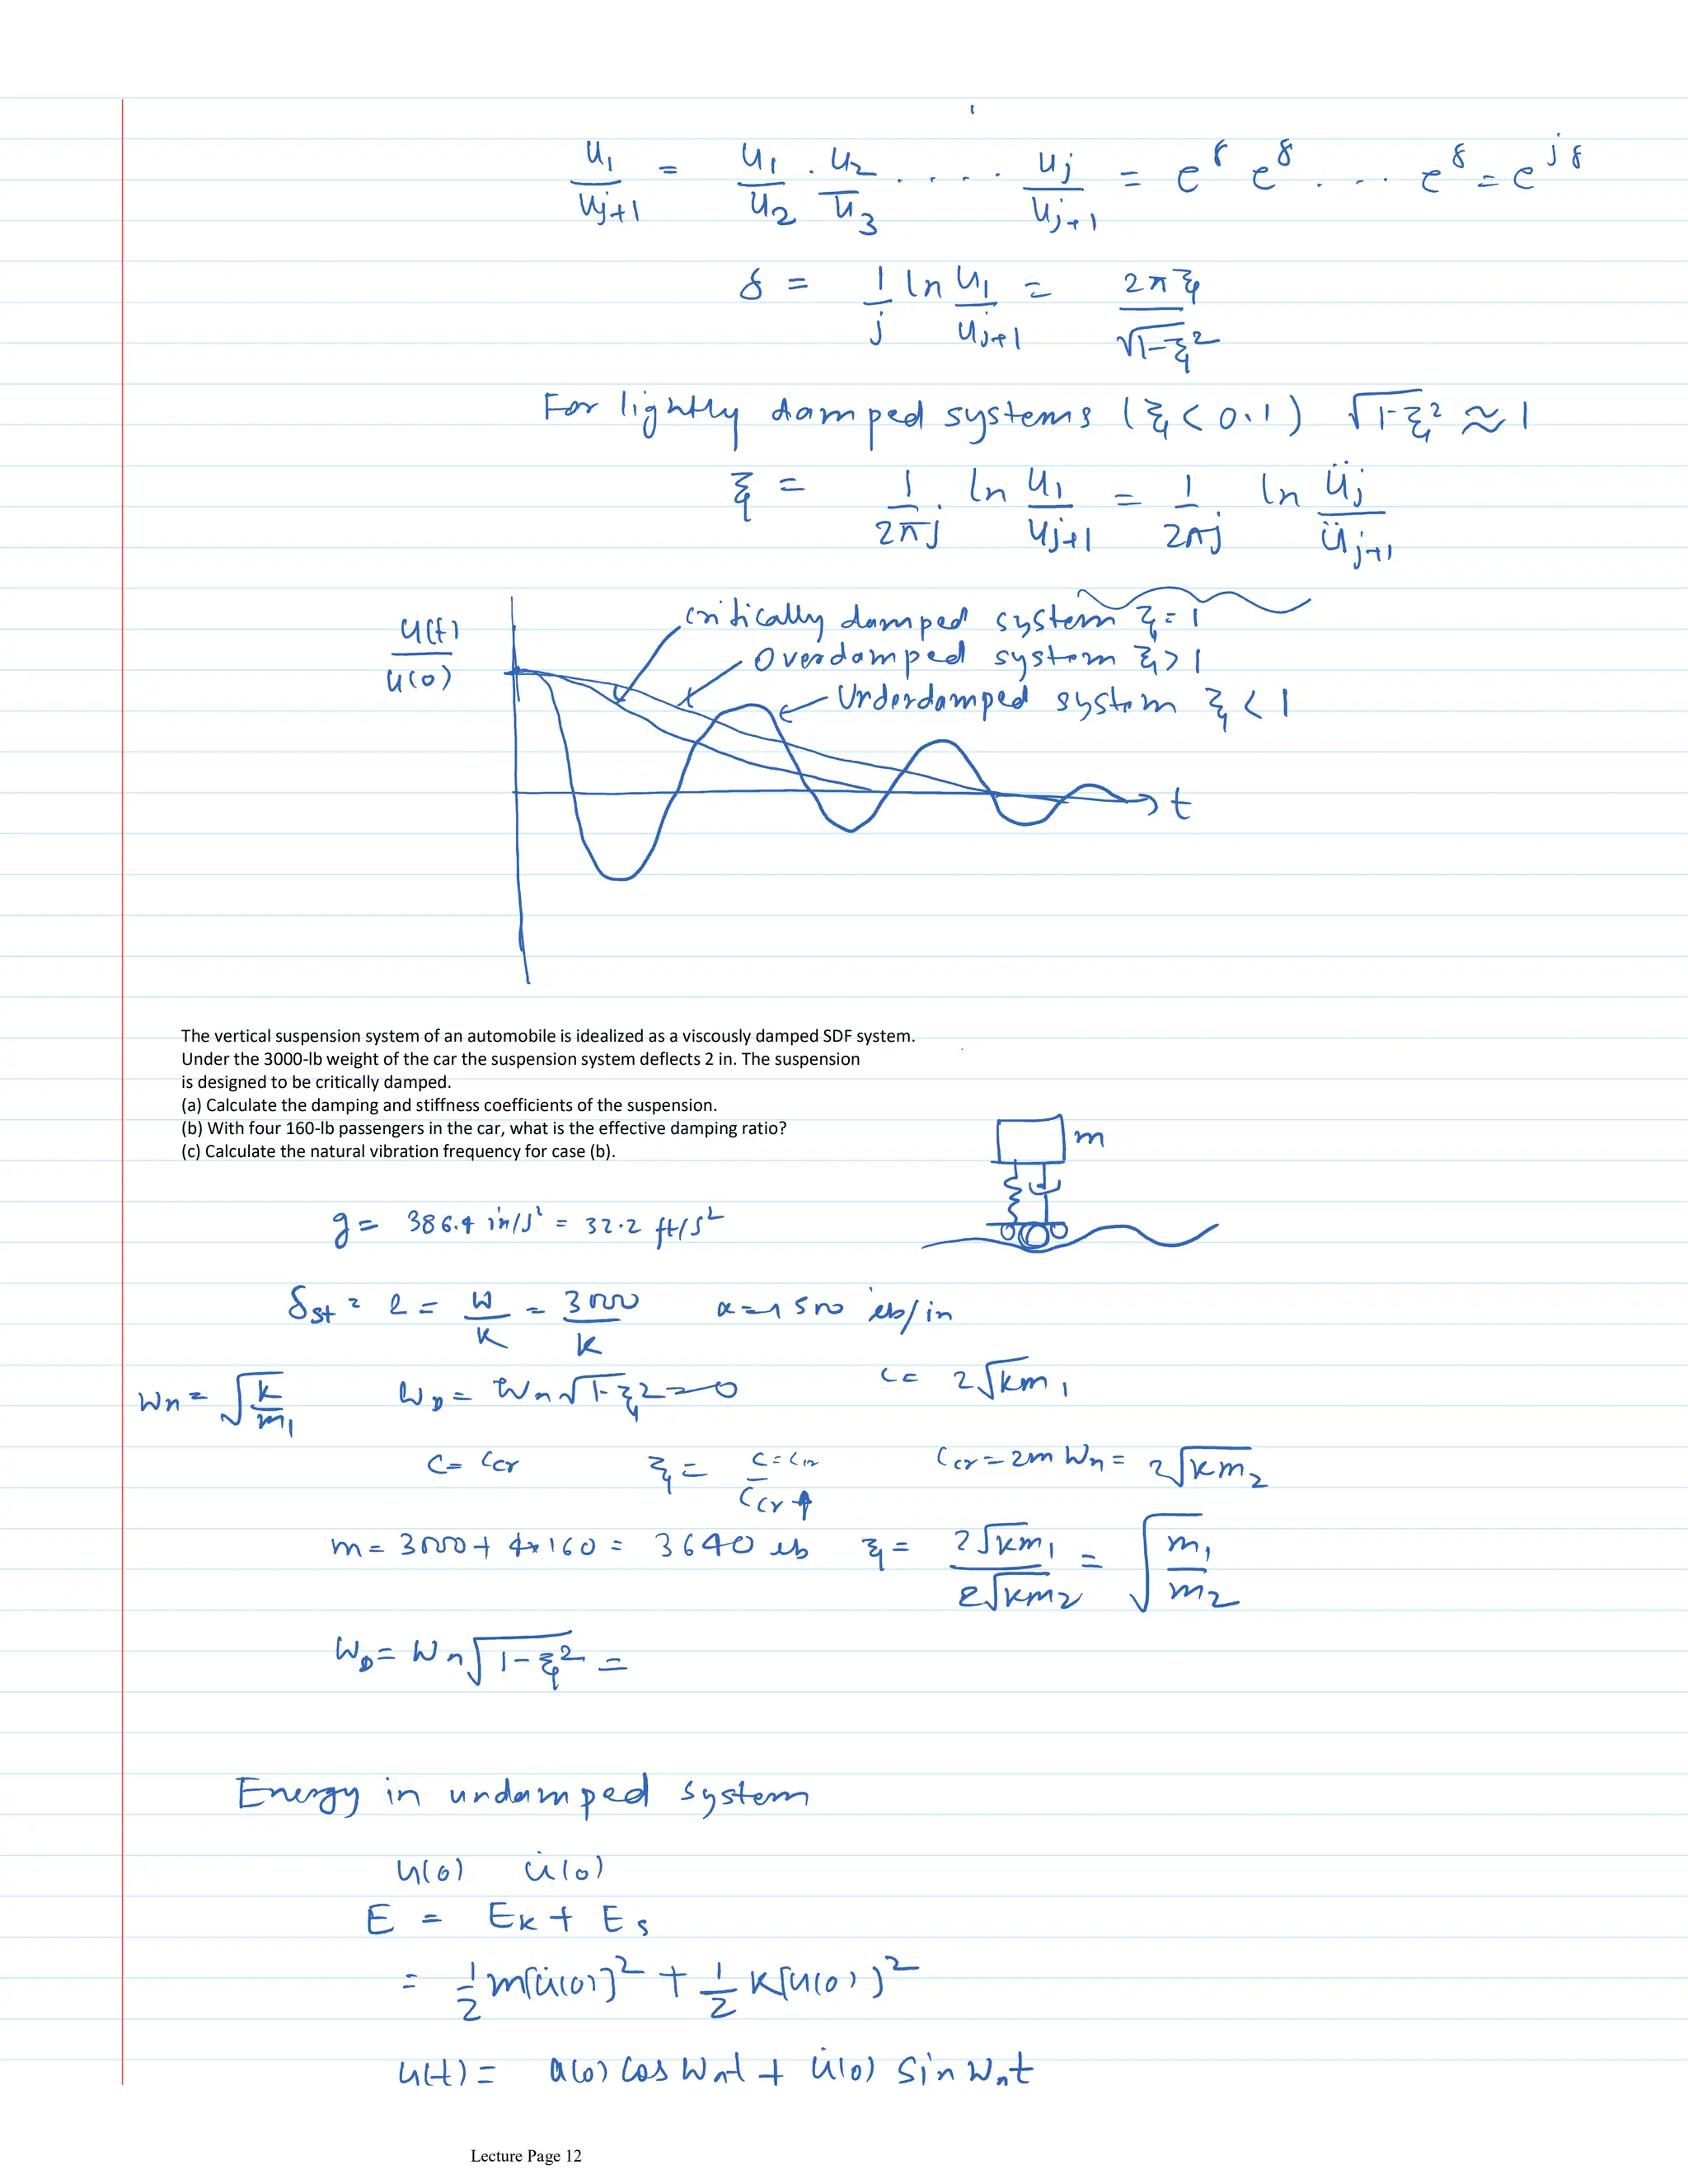 u₁/uⱼ₊₁ = u₁/u₂ · u₂/u₃ . . . . . uⱼ/uⱼ₊₁ = e^δ e^δ . . . . e^δ = e^jδ
δ = 1/j ln u₁/uⱼ₊₁ = 2πξ/√(1-ξ²)
For lightly damped systems (ξ < 0.1) √(1-ξ²) ≈ 1
ξ = 1/2πj ln u₁/uⱼ₊₁ = 1/2πj ln üⱼ/üⱼ₊₁
critically damped system ξ = 1
u(t)/u(0)
Overdamped system ξ > 1
Underdamped system ξ < 1
t
The vertical suspension system of an automobile is idealized as a viscously damped SDF system.
Under the 3000-lb weight of the car the suspension system deflects 2 in. The suspension
is designed to be critically damped.
(a) Calculate the damping and stiffness coefficients of the suspension.
(b) With four 160-lb passengers in the car, what is the effective damping ratio?
(c) Calculate the natural vibration frequency for case (b).
m
g = 386.4 in/s² = 32.2 ft/s²
δst = 2 = W/K = 3000/K = 1500 lb/in
Wn = √(k/m₁) W_D = Wn√(1-ξ²) = 0 c = 2√(km₁)
C = Ccr ξ = C=Ccr/Ccr↑ Ccr = 2m Wn = 2√(km₂)
m = 3000 + 4*160 = 3640 lb ξ = 2√(km₁)/2√(km₂) = √(m₁/m₂)
W_D = Wn√(1-ξ²) =
Energy in undamped system
u(0) u̇(0)
E = EK + Es
= 1/2 m[u̇(0)]² + 1/2 K[u(0)]²
u(t) = u(0) cos Wnt + u̇(0) sin Wnt
Lecture Page 12